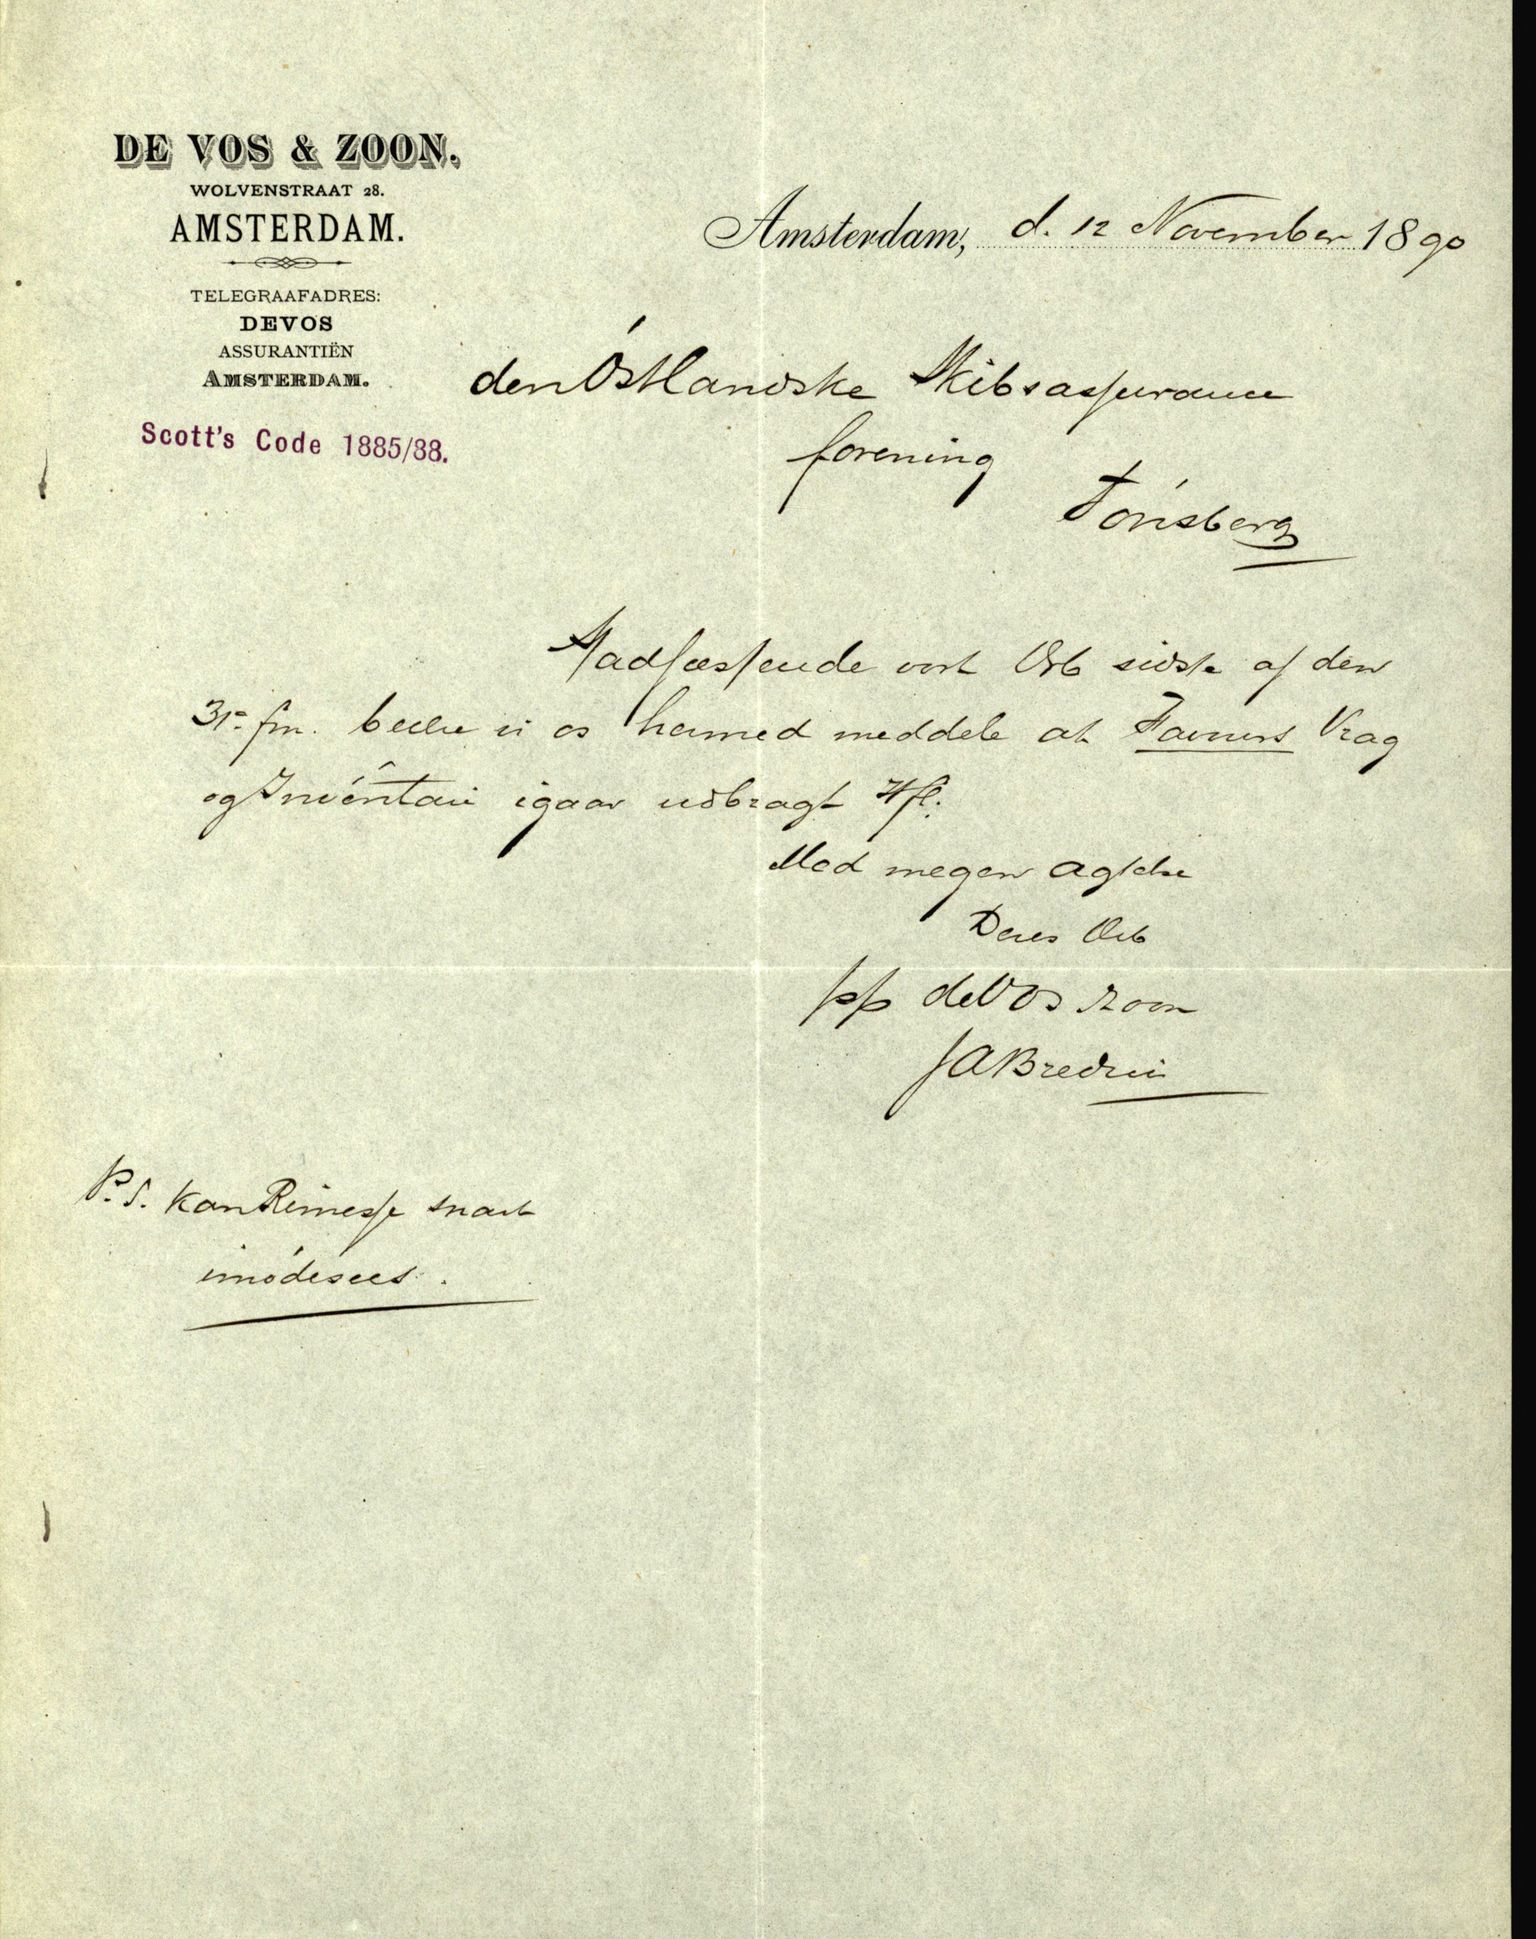 DE VOS & ZOON.
WOLVENSTRAAT 28.
AMSTERDAM.
TELEGRAAFADRES:
DEVOS
ASSURANTIËN
AMSTERDAM.
Scott's Code 1885/88.
Amsterdam, d. 12 November 1890
den Östlandske Skibsassurance
forening
Tönsberg
Stadfæstende vort Erb sidste af den
31e fm. bedre vi os hermed meddele at Vrag
og Inventari igaar udbragt Hfl.
Med megen Agtelse
Deres Erb
pp de Vos & Zoon
P.S. Kan Rimesse snart
imödesees.